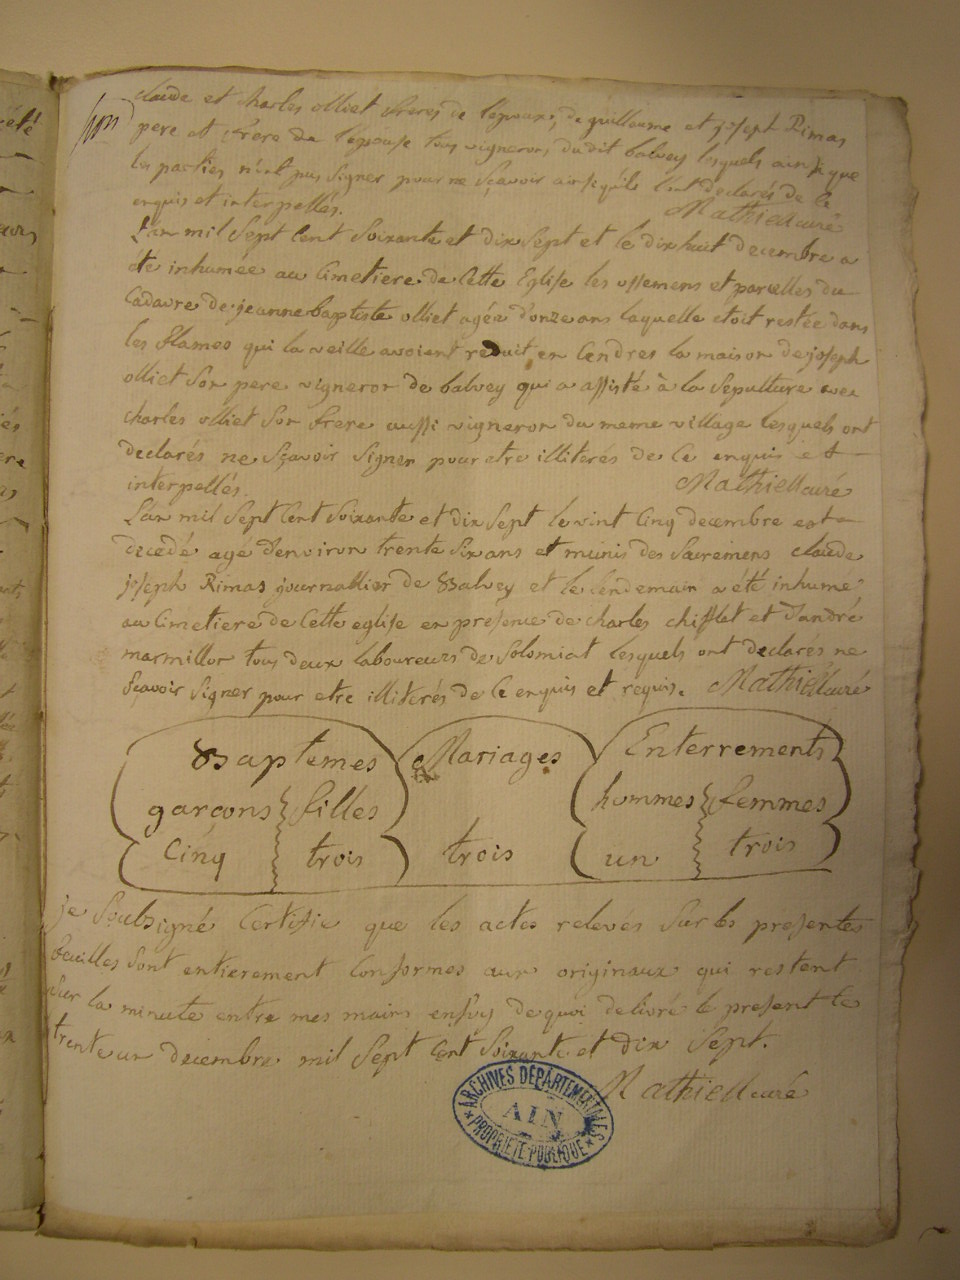 claude et charles olliet freres de l'epoux, de guillaume et joseph Rimas
pere et frere de l'epouse tous vignerons dudit balvey lesquels ainsi que
les parties n'ont pas signer pour ne sçavoir ainsi qu'ils l'ont declarés de ce
enquis et interpellés. Mathieu curé
L'an mil sept cent soixante et dix sept et le dix huit decembre a
ete inhumée au cimetiere de cette Eglise les ossemens et parcelles du
cadavre de jeanne baptiste olliet agée d'onze ans laquelle etoit restée dans
les flames qui la veille avoient reduit en cendres la maison de joseph
olliet son pere vigneron de balvey qui a assisté à la sepulture avec
charles olliet son frere aussi vigneron du meme village lesquels ont
declarés ne sçavoir signer pour etre illiteres de ce enquis et
interpellés. Mathieu curé
L'an mil sept cent soixante et dix sept le vint cinq decembre est
decedé agé d'environ trente six ans et munis des sacremens claude
joseph Rimas journallier de Balvey et le lendemain a été inhumé
au cimetiere de cette eglise en presence de charles chifflet et d'andré
marmillon tous deux laboureurs de solomiat lesquels ont declarés ne
sçavoir signer pour etre illiterés de ce enquis et requis. Mathieu curé
Baptemes Mariages Enterrements
garçons filles hommes femmes
Cinq trois trois un trois
je soubsigné certifie que les actes relevés sur les presentes
feuilles sont entierement conformes aux originaux qui restent
sur la minute entre mes mains en foy de quoi delivré le present le
trente un decembre mil sept cent soixante et dix sept.
Mathieu curé
ARCHIVES DÉPARTEMENTALES
AIN
PROPRIÉTÉ PUBLIQUE